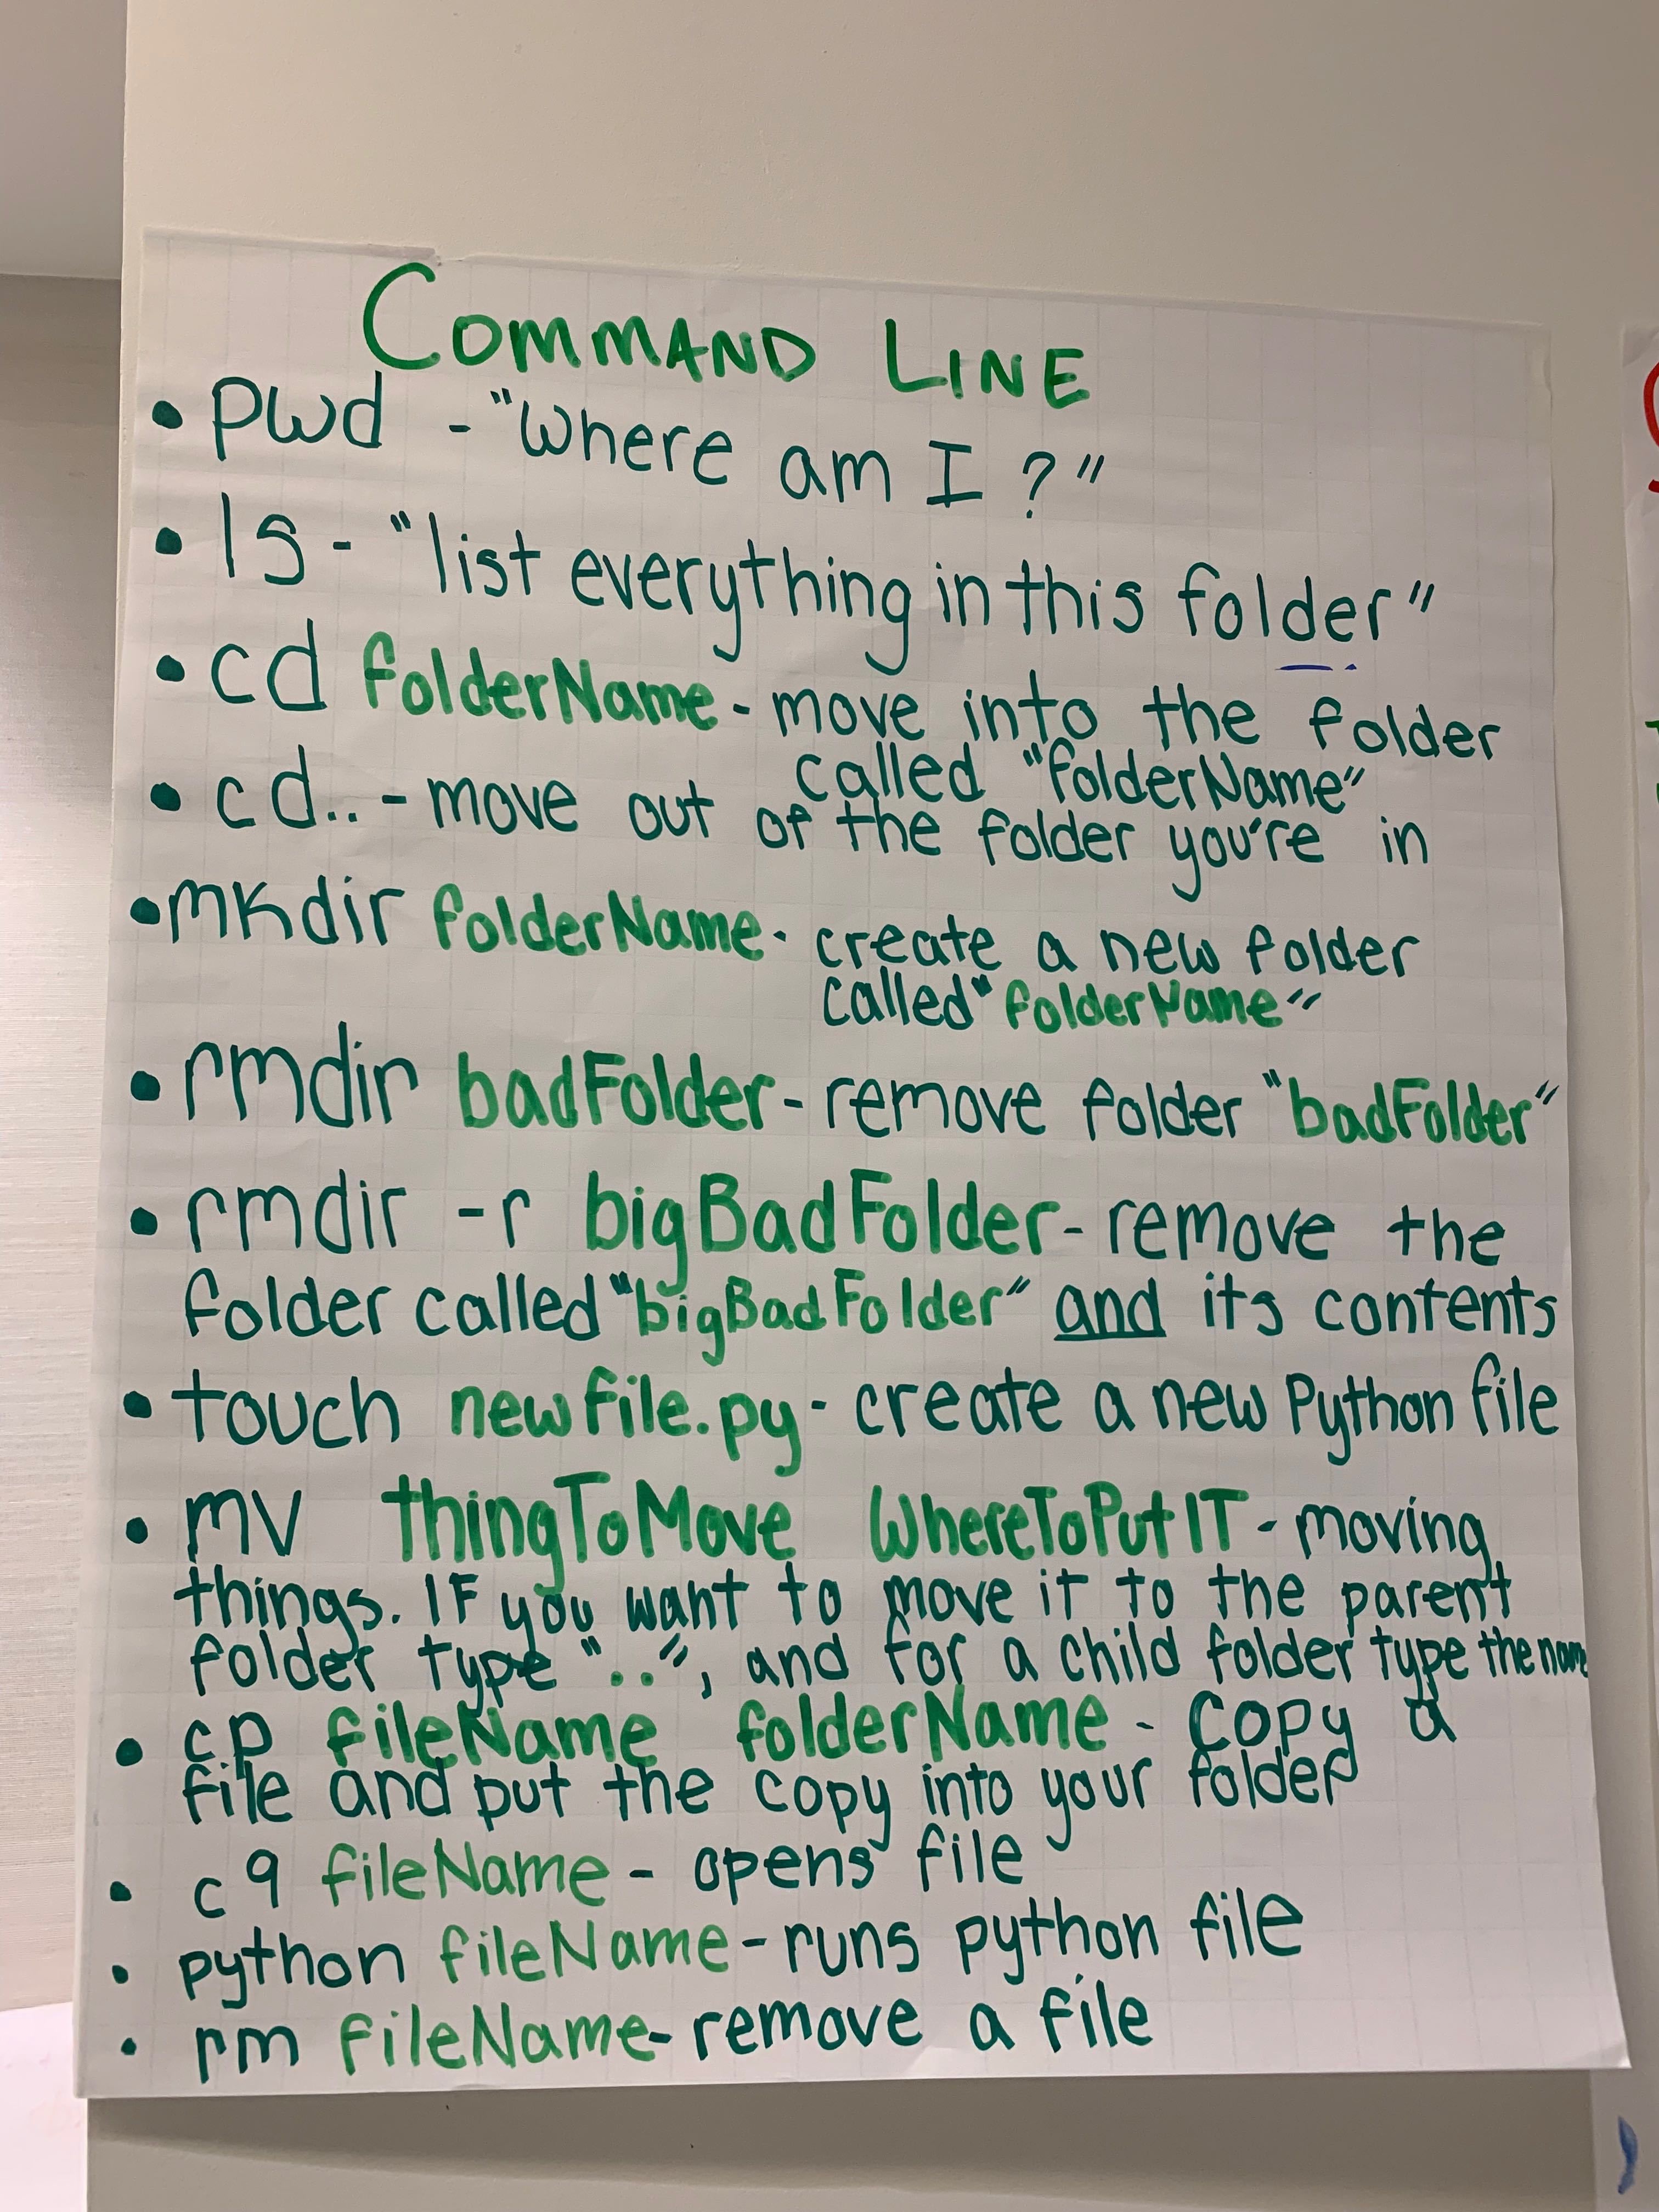 COMMAND LINE
• pwd - "Where am I?"
• ls - "list everything in this folder"
• cd folderName - move into the folder
called "folderName"
• cd.. - move out of the folder you're in
• mkdir folderName - create a new folder
called "folderName"
• rmdir badFolder - remove folder "badFolder"
• rmdir -r bigBadFolder - remove the
folder called "bigBadFolder" and its contents
• touch newfile.py - create a new Python file
• mv thingToMove WhereToPutIT - moving
things. IF you want to move it to the parent
folder type "..", and for a child folder type the name
• cp fileName folderName - copy a
file and put the copy into your folder
• c9 fileName - opens file
• python fileName - runs python file
• rm fileName - remove a file